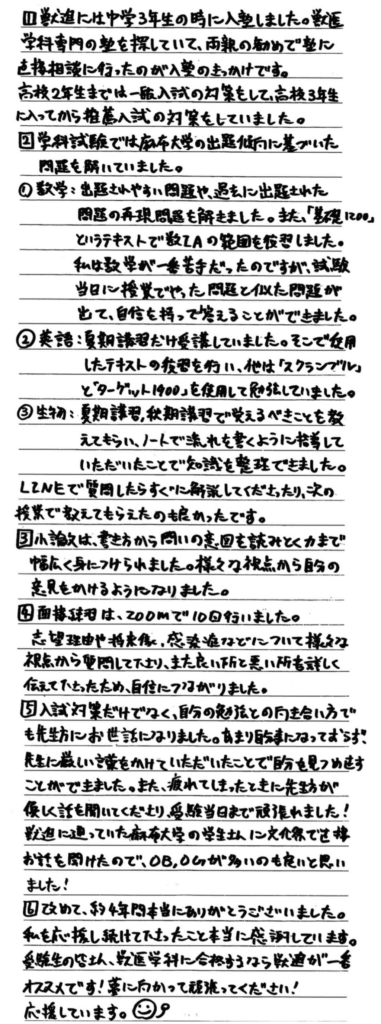 1 獣進には中学3年生の時に入塾しました。獣医
学科専門の塾を探していて、両親の勧めで塾に
直接相談に行ったのが入塾のきっかけです。
高校2年生までは一般入試の対策をして、高校3年生
に入ってから推薦入試の対策をしていました。
2 学科試験では麻布大学の出題傾向に基づいた
問題を解いていました。
① 数学:出題されやすい問題や、過去に出題された
問題の再現問題を解きました。また、「基礎1200」
というテキストで数ⅠAの範囲を復習しました。
私は数学が一番苦手だったのですが、試験
当日に授業でやった問題と似た問題が
出て、自信を持って答えることができました。
② 英語:夏期講習だけ受講していました。そこで使用
したテキストの復習を行い、他は「スクランブル」
と「ターゲット1900」を使用して勉強していました。
③ 生物:夏期講習、秋期講習で覚えるべきことを教
えてもらい、ノートで流れを書くように指導して
いただいたことで知識を整理できました。
LINEで質問したらすぐに解説してくださったり、次の
授業で教えてもらえたのも良かったです。
3 小論文は、書き方から問いの意図を読みとく力まで
幅広く身につけられました。様々な視点から自分の
意見をかけるようになりました。
4 面接練習は、ZOOMで10回行いました。
志望理由や将来像、感染症などについて様々な
視点から質問して下さり、また良い所と悪い所を詳しく
伝えて下さったため、自信につながりました。
5 入試対策だけでなく、自分の勉強との向き合い方で
も先生方にお世話になりました。あまり段事になっておらず
先生に厳しい言葉をかけていただいたことで自分を見つめ直す
ことができました。また、疲れてしまったときに先生方が
優しく話を聞いてくださり、受験当日まで頑張れました!
獣進に通っていた麻布大学の学生さんに文化祭で直接
お話も聞けたので、OB,OGが多いのも良いと思い
ました!
6 改めて、約4年間本当にありがとうございました。
私を応援し続けて下さったこと本当に感謝しています。
受験生の皆さん、獣医学科に合格するなら獣進が一番
オススメです!夢に向かって頑張ってください!
応援しています。